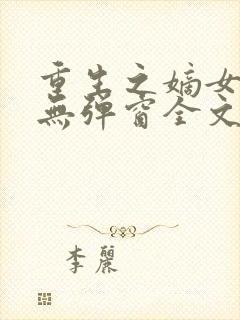 重生之嫡女
無彈窗全文
李麗